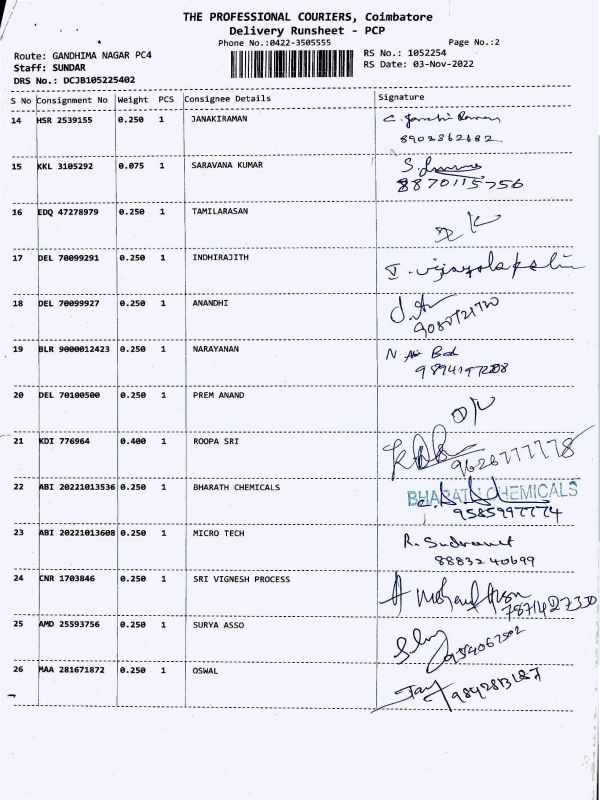 THE PROFESSIONAL COURIERS, Coimbatore
Delivery Runsheet - PCP
Phone No.:0422-3505555 Page No.:2
Route: GANDHIMA NAGAR PC4 RS No.: 1052254
Staff: SUNDAR RS Date: 03-Nov-2022
DRS No.: DCJB105225402
S No Consignment No Weight PCS Consignee Details Signature
14 HSR 2539155 0.250 1 JANAKIRAMAN
8902862682
15 KKL 3105292 0.075 1 SARAVANA KUMAR
8870115756
16 EDQ 47278979 0.250 1 TAMILARASAN
17 DEL 70099291 0.250 1 INDHIRAJITH
18 DEL 70099927 0.250 1 ANANDHI
19 BLR 9000012423 0.250 1 NARAYANAN
20 DEL 70100500 0.250 1 PREM ANAND
21 KDI 776964 0.400 1 ROOPA SRI
9626777778
22 ABI 20221013536 0.250 1 BHARATH CHEMICALS BHARATH CHEMICALS
9585997774
23 ABI 20221013608 0.250 1 MICRO TECH
8883240699
24 CNR 1703846 0.250 1 SRI VIGNESH PROCESS
7871427330
25 AMD 25593756 0.250 1 SURYA ASSO
26 MAA 281671872 0.250 1 OSWAL